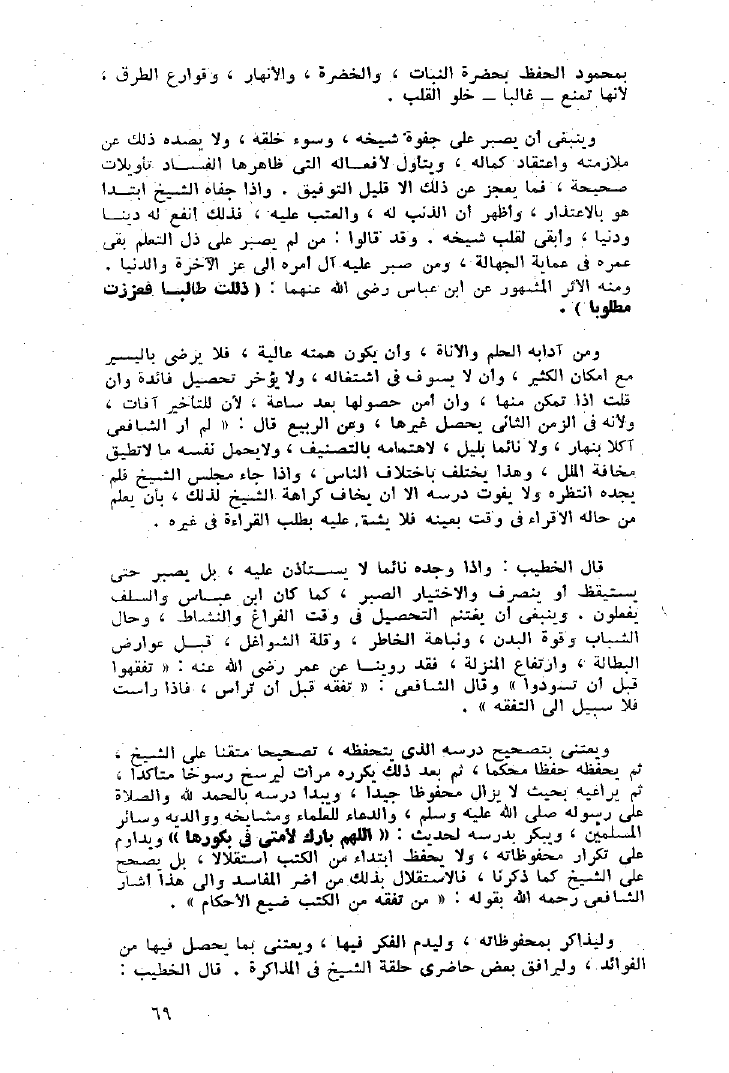 بمحمود الحفظ بحضرة النبات ، والخضرة ، والأنهار ، وقوارع الطرق ،
لأنها تمنع ــ غالبا ــ خلو القلب .
وينبغى أن يصبر على جفوة شيخه ، وسوء خلقه ، ولا يصده ذلك عن
ملازمته واعتقاد كماله ، ويتأول لأفعاله التى ظاهرها الفساد تأويلات
صحيحة ، فما يعجز عن ذلك الا قليل التوفيق . واذا جفاه الشيخ ابتدا
هو بالاعتذار ، وأظهر أن الذنب له ، والعتب عليه ، فذلك أنفع له دينا
ودنيا ، وأبقى لقلب شيخه . وقد قالوا : من لم يصبر على ذل التعلم بقى
عمره فى عماية الجهالة ، ومن صبر عليه آل أمره الى عز الآخرة والدنيا .
ومنه الأثر المشهور عن ابن عباس رضى الله عنهما : ( ذللت طالبا فعززت
مطلوبا ) .
ومن آدابه الحلم والأناة ، وأن يكون همته عالية ، فلا يرضى باليسير
مع امكان الكثير ، وأن لا يسوف فى اشتغاله ، ولا يؤخر تحصيل فائدة وان
قلت اذا تمكن منها ، وان أمن حصولها بعد ساعة ، لأن للتأخير آفات ،
ولأنه فى الزمن الثانى يحصل غيرها ، وعن الربيع قال : « لم أر الشافعى
آكلا بنهار ، ولا نائما بليل ، لاهتمامه بالتصنيف ، ولايحمل نفسه ما لاتطيق
مخافة الملل ، وهذا يختلف باختلاف الناس ، واذا جاء مجلس الشيخ فلم
يجده انتظره ولا يفوت درسه الا ان يخاف كراهة الشيخ لذلك ، بأن يعلم
من حاله الاقراء فى وقت بعينه فلا يشق عليه بطلب القراءة فى غيره .
قال الخطيب : واذا وجده نائما لا يستأذن عليه ، بل يصبر حتى
يستيقظ أو ينصرف والاختيار الصبر ، كما كان ابن عباس والسلف
يفعلون . وينبغى أن يغتنم التحصيل فى وقت الفراغ والنشاط ، وحال
الشباب وقوة البدن ، ونباهة الخاطر ، وقلة الشواغل ، قبل عوارض
البطالة ، وارتفاع المنزلة ، فقد روينا عن عمر رضى الله عنه : « تفقهوا
قبل أن تسودوا » وقال الشافعى : « تفقه قبل أن ترأس ، فاذا رأست
فلا سبيل الى التفقه » .
ويعتنى بتصحيح درسه الذى يتحفظه ، تصحيحا متقنا على الشيخ ،
ثم يحفظه حفظا محكما ، ثم بعد ذلك يكرره مرات ليرسخ رسوخا متأكدا ،
ثم يراعيه بحيث لا يزال محفوظا جيدا ، ويبدا درسه بالحمد لله والصلاة
على رسوله صلى الله عليه وسلم ، والدعاء للعلماء ومشايخه ووالديه وسائر
المسلمين ، ويبكر بدرسه لحديث : « اللهم بارك لأمتى فى بكورها » ويداوم
على تكرار محفوظاته ، ولا يحفظ ابتداء من الكتب استقلالا ، بل يصحح
على الشيخ كما ذكرنا ، فالاستقلال بذلك من أضر المفاسد والى هذا أشار
الشافعى رحمه الله بقوله : « من تفقه من الكتب ضيع الأحكام » .
وليذاكر بمحفوظاته ، وليدم الفكر فيها ، ويعتنى بما يحصل فيها من
الفوائد ، وليرافق بعض حاضرى حلقة الشيخ فى المذاكرة . قال الخطيب :
٦٩